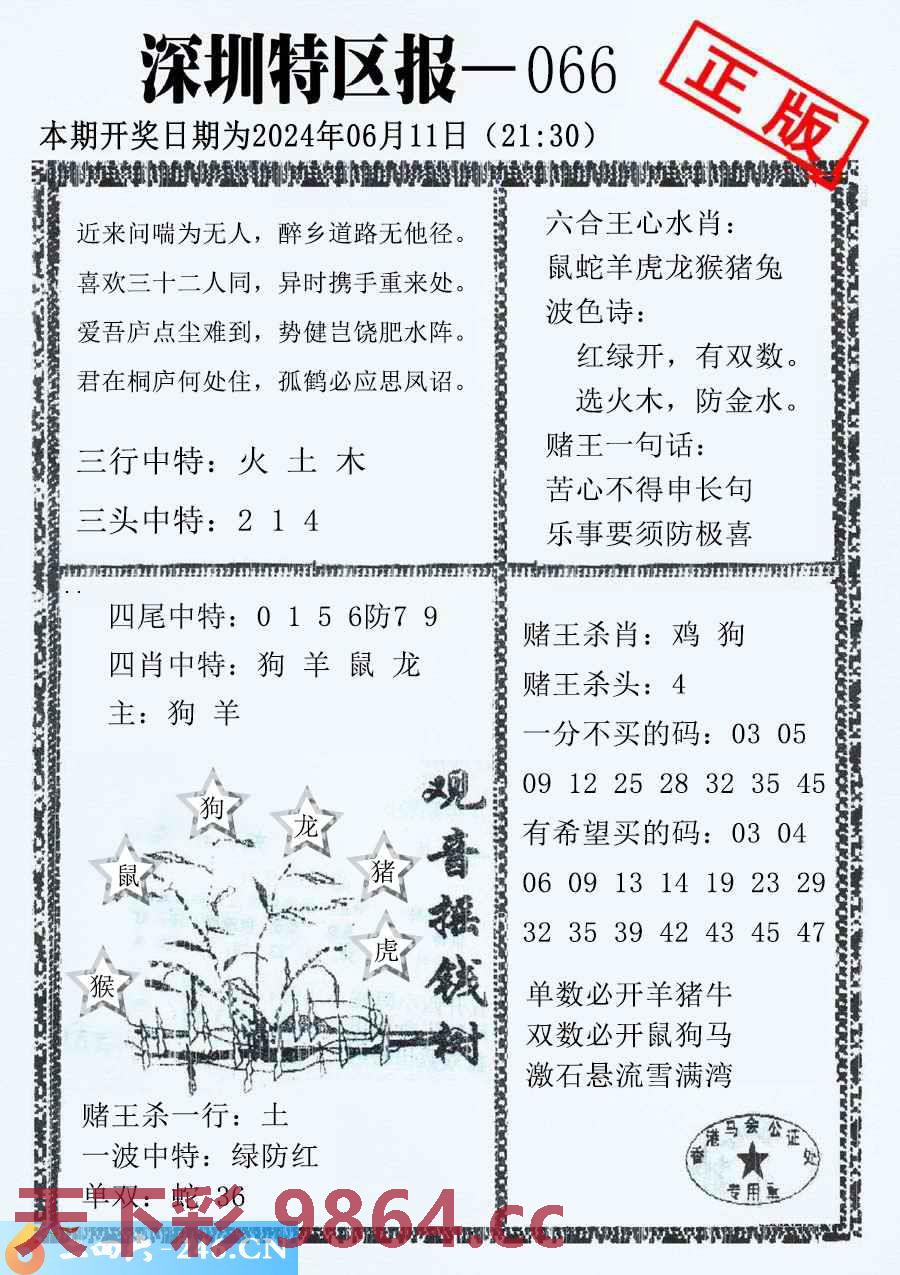 深圳特区报—066
正版
本期开奖日期为2024年06月11日（21:30）
近来问喘为无人，醉乡道路无他径。
喜欢三十二人同，异时携手重来处。
爱吾庐点尘难到，势健岂饶肥水阵。
君在桐庐何处住，孤鹤必应思凤诏。
三行中特：火 土 木
三头中特：2 1 4
六合王心水肖：
鼠蛇羊虎龙猴猪兔
波色诗：
红绿开，有双数。
选火木，防金水。
赌王一句话：
苦心不得申长句
乐事要须防极喜
四尾中特：0 1 5 6防7 9
四肖中特：狗 羊 鼠 龙
主：狗 羊
狗
龙
鼠
猪
虎
猴
观音摇钱树
赌王杀一行：土
一波中特：绿防红
单双：蛇 36
赌王杀肖：鸡 狗
赌王杀头：4
一分不买的码：03 05
09 12 25 28 32 35 45
有希望买的码：03 04
06 09 13 14 19 23 29
32 35 39 42 43 45 47
单数必开羊猪牛
双数必开鼠狗马
激石悬流雪满湾
香港马会公证处
专用章
天下彩 9864.cc